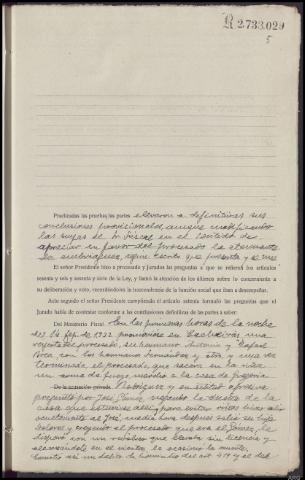 R 2.733.029
5
Practicadas las pruebas, las partes elevaron a definitivas sus
conclusiones provisionales, aunque modificando
las suyas el Sr. Fiscal en el sentido de
apreciar en favor del procesado la atenuante
de embriaguez, según escrito que presenta y se une
El señor Presidente hizo a procesado y Jurados las preguntas a que se refieren los artículos
sesenta y seis y sesenta y siete de la Ley, y llamó la atención de los últimos sobre lo concerniente a
su deliberación y voto, recordándoles la trascendencia de la función social que iban a desempeñar.
Acto seguido el señor Presidente cumpliendo el artículo setenta formuló las preguntas que el
Jurado había de contestar conforme a las conclusiones definitivas de las partes a saber.
Del Ministerio Fiscal: En las primeras horas de la noche
del de 1932 promovióse en una
reyerta el procesado, su hermano Antonio y Rafael
Roca con los hermanos y otro y una vez
terminada el procesado, que sacó en la
un arma de fuego, marchó a la casa de
De la acusación privada Rodríguez y en actitud agresiva
preguntó por José Gómez, negando la dueña de la
casa que estuviese allí, para evitar
al José, media hora después salió su hijo
Dolores y creyendo el procesado que era el Gómez, le
disparó con un revólver que llevaba sin licencia y
alcanzándole en el vientre, le ocasionó la muerte.
un delito de homicidio del art 419 y el del